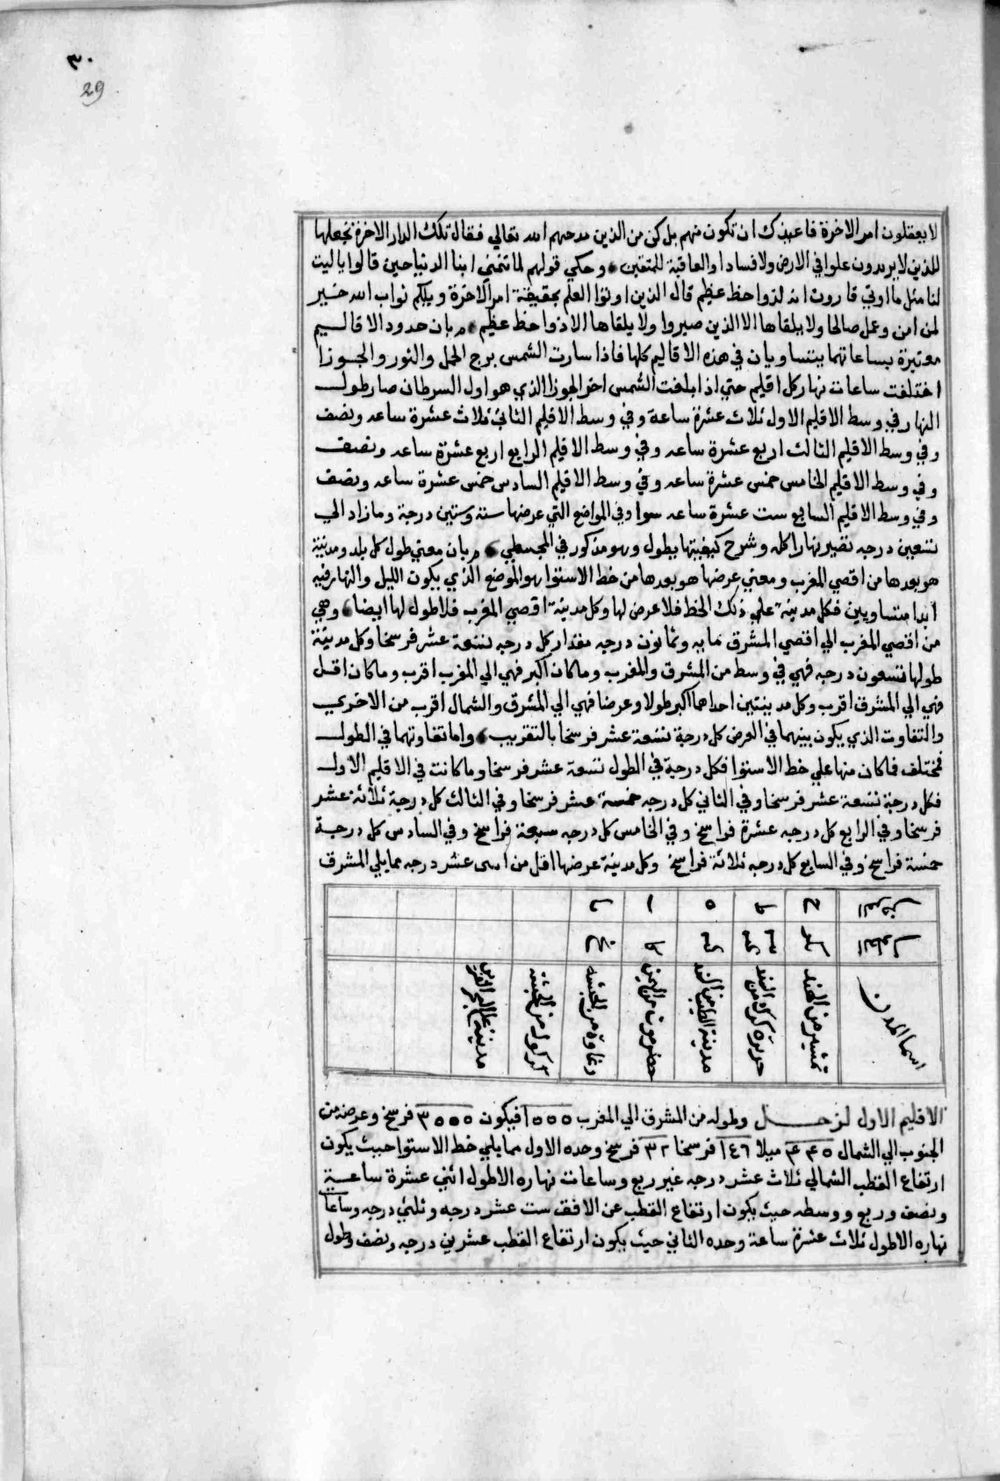 ٣٠
29
لا يعقلون امر الاخرة فاعيذك ان تكون منهم بل كن من الذين مدحهم الله تعالي فقال تلك الدار الاخرة نجعلها
للذين لا يريدون علوا في الارض ولا فسادا والعاقبة للمتقين وحكي قولهم لما تمني ابنا الدنيا حين قالوا يا ليت
لنا مثل ما اوتي قارون انه لذوا حظ عظيم قال الذين اوتوا العلم بحقيقة امر الاخرة ويلكم ثواب الله خير
لمن امن وعمل صالحا ولا يلقاها الا الذين صبروا ولا يلقاها الا ذوا حظ عظيم بان حدود الاقاليم
معتبرة بساعاتهما يتساويان في هذه الاقاليم كلها فاذا سارت الشمس برج الحمل والثور والجوزا
اختلفت ساعات نهار كل اقليم حتي اذا بلغت الشمس اخر الجوزا الذي هو اول السرطان صار طول
النهار في وسط الاقليم الاول ثلاث عشرة ساعة وفي وسط الاقليم الثاني ثلاث عشرة ساعه ونصف
وفي وسط الاقليم الثالث اربع عشرة ساعه وفي وسط الاقليم الرابع اربع عشرة ساعه ونصف
وفي وسط الاقليم الخامس خمس عشرة ساعه وفي وسط الاقليم السادس خمس عشرة ساعه ونصف
وفي وسط الاقليم السابع ست عشرة ساعه سوا وفي المواضع التي عرضها ستة وستين درجة وما زاد الي
تسعين درجه تصير نهارا كله وشرح كيفيتها يطول وهو مذكور في المجسطي بان معني طول كل بلد ومدينة
هو بعدها من اقصي المغرب ومعني عرضها هو بعدها من خط الاستوا هو الموضع الذي يكون الليل والنهار فيه
ابدا متساويين فكل مدينة علي ذلك الخط فلا عرض لها وكل مدينة اقصي المغرب فلا طول لها ايضا وهي
من اقصي المغرب الي اقصي المشرق مايه وثمانون درجه مقدار كل درجه تسعة عشر فرسخا وكل مدينة
طولها تسعون درجه فهي في وسط من المشرق والمغرب وما كان اكبر فهي الي المغرب اقرب وما كان اقل
فهي الي المشرق اقرب وكل مدينتين احداهما اكبر طولا وعرضا فهي الي المشرق والشمال اقرب من الاخري
والتفاوت الذي يكون بينهما في العرض كل درجة تسعة عشر فرسخا بالتقريب واما تفاوتهما في الطول
فمختلف فما كان منها علي خط الاستوا فكل درجة في الطول تسعة عشر فرسخا وما كانت في الاقليم الاول
فكل درجة تسعة عشر فرسخا وفي الثاني كل درجه خمسة عشر فرسخا وفي الثالث كل درجة ثلاثة عشر
فرسخا وفي الرابع كل درجه عشرة فراسخ وفي الخامس كل درجه سبعة فراسخ وفي السادس كل درجة
خمسة فراسخ وفي السابع كل درجه ثلاثة فراسخ وكل مدينة عرضها اقل من اثنى عشر درجه مما يلي المشرق
العرض
الطول
اسما المدن
من الهند
جزيرة كرك من الهند
مدينة الطيب من الهند
حضرموت من اليمن
دغاوة من الحبشة
كركول من الحبشة
مدينة علي البر الغربي
الاقليم الاول لزحل وطوله من المشرق الي المغرب ١٥٥٥ فيكون ٣٥٥٥ فرسخ وعرضه من
الجنوب الي الشمال ٤٤٥ ميلا ١٤٦ فرسخا ٣٢ فرسخ وحده الاول مما يلي خط الاستوا حيث يكون
ارتفاع القطب الشمالي ثلاث عشر درجه غير ربع وساعات نهاره الاطول اثني عشرة ساعة
ونصف وربع ووسطه حيث يكون ارتفاع القطب عن الافق ست عشر درجه وثلثي درجه وساعات
نهاره الاطول ثلاث عشرة ساعة وحده الثاني حيث يكون ارتفاع القطب عشرين درجه ونصف وطول